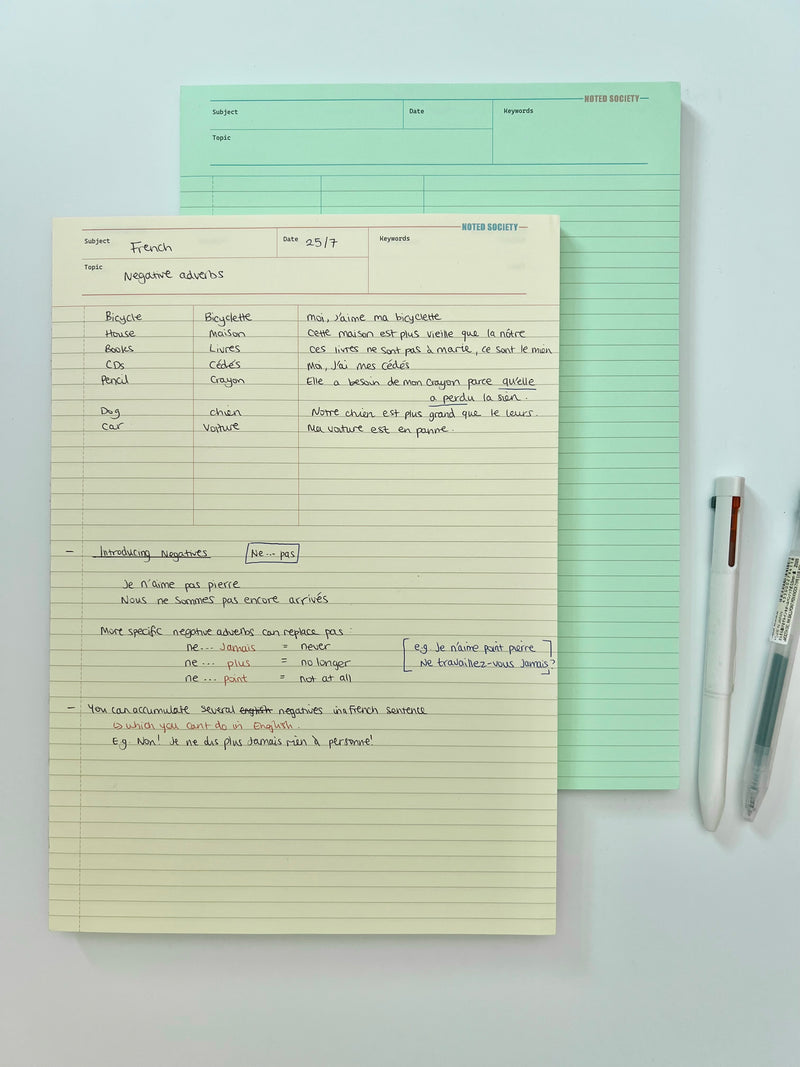 NOTED SOCIETY
Subject
Date
Keywords
Topic
NOTED SOCIETY
Subject French
Date 25/7
Keywords
Topic Negative adverbs
Bicycle Bicyclette Moi, J'aime ma bicyclette
House Maison Cette maison est plus vieille que la nôtre
Books Livres Ces livres ne sont pas à marie, ce sont le mien
CDs Cédés Moi, J'ai mes cédés
Pencil Crayon Elle a besoin de mon crayon parce qu'elle
a perdu la sien.
Dog chien Notre chien est plus grand que le leurs.
Car Voiture Ma voiture est en panne.
- Introducing Negatives Ne... pas
Je n'aime pas pierre
Nous ne sommes pas encore arrivés
More specific negative adverbs can replace pas
ne... Jamais = never
ne... plus = no longer
ne... point = not at all
e.g. Je n'aime point pierre
Ne travaillez-vous Jamais?
- You can accumulate several english negatives in a French sentence
↳ which you cant do in English.
E.g. Non! Je ne dis plus Jamais rien à personne!